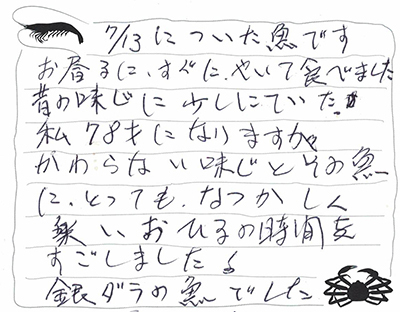 7/13についた魚です
お昼るに、すぐに、やいて食べました
昔の味じに少しにていたが
私78才になりますが
かわらない味じとその魚
に、とっても、なつかしく
楽いおひるの時間を
すごしました。
銀ダラの魚でした